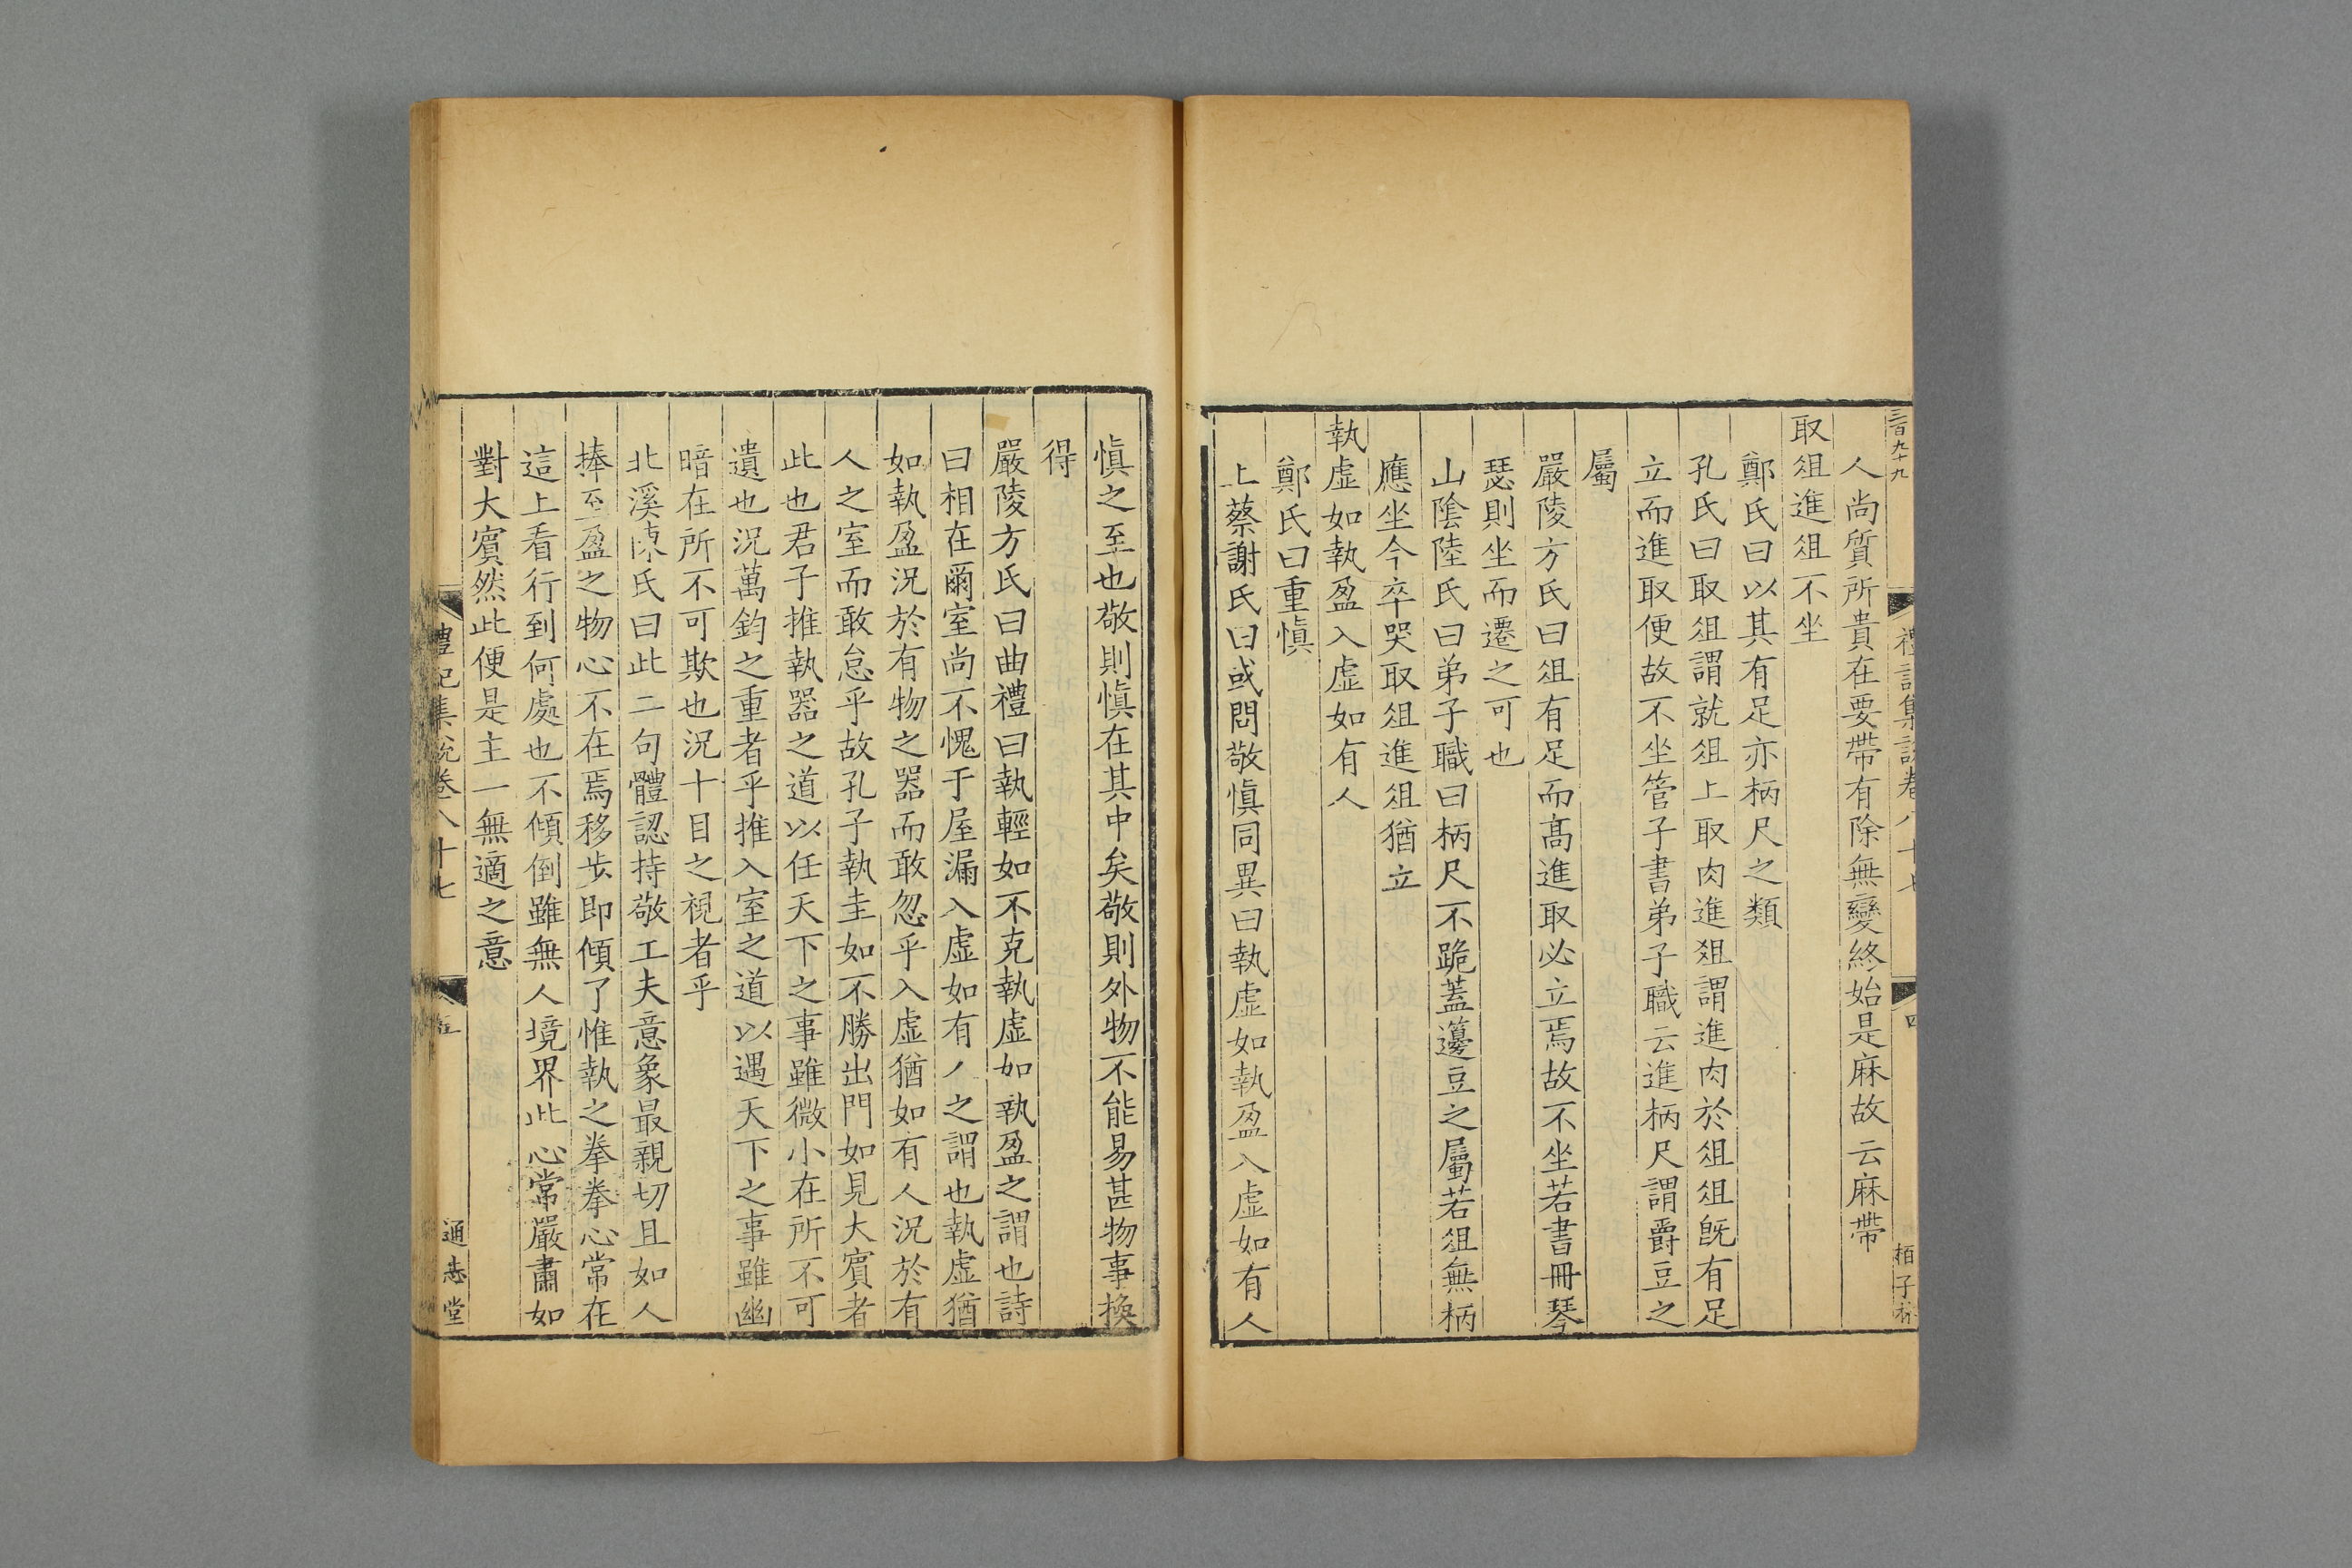 三百九十九
禮記集說卷八十七
四
人尚質所貴在要帶有除無變終始是麻故云麻帶
取俎進俎不坐
鄭氏曰以其有足亦柄尺之類
孔氏曰取俎謂就俎上取肉進俎謂進肉於俎俎旣有足
立而進取便故不坐管子書弟子職云進柄尺謂爵豆之
屬
嚴陵方氏曰俎有足而髙進取必立焉故不坐若書冊琴
瑟則坐而遷之可也
山隂陸氏曰弟子職曰柄尺不跪蓋籩豆之屬若俎無柄
應坐今卒哭取俎進俎猶立
執虚如執盈入虚如有人
鄭氏曰重慎
上蔡謝氏曰或問敬慎同異曰執虚如執盈入虚如有人
慎之至也敬則慎在其中矣敬則外物不能易甚物事換
得
嚴陵方氏曰曲禮曰執輕如不克執虚如執盈之謂也詩
曰相在爾室尚不愧于屋漏入虚如有人之謂也執虚猶
如執盈況於有物之器而敢忽乎入虚猶如有人況於有
人之室而敢怠乎故孔子執圭如不勝出門如見大賔者
此也君子推執器之道以任天下之事雖微小在所不可
遺也況萬鈞之重者乎推入室之道以遇天下之事雖幽
暗在所不可欺也況十目之視者乎
北溪陳氏曰此二句體認持敬工夫意象最親切且如人
捧至盈之物心不在焉移步即傾了惟執之拳拳心常在
這上看行到何處也不傾倒雖無人境界此心常嚴肅如
對大賔然此便是主一無適之意
禮記集說卷八十七
五
通志堂